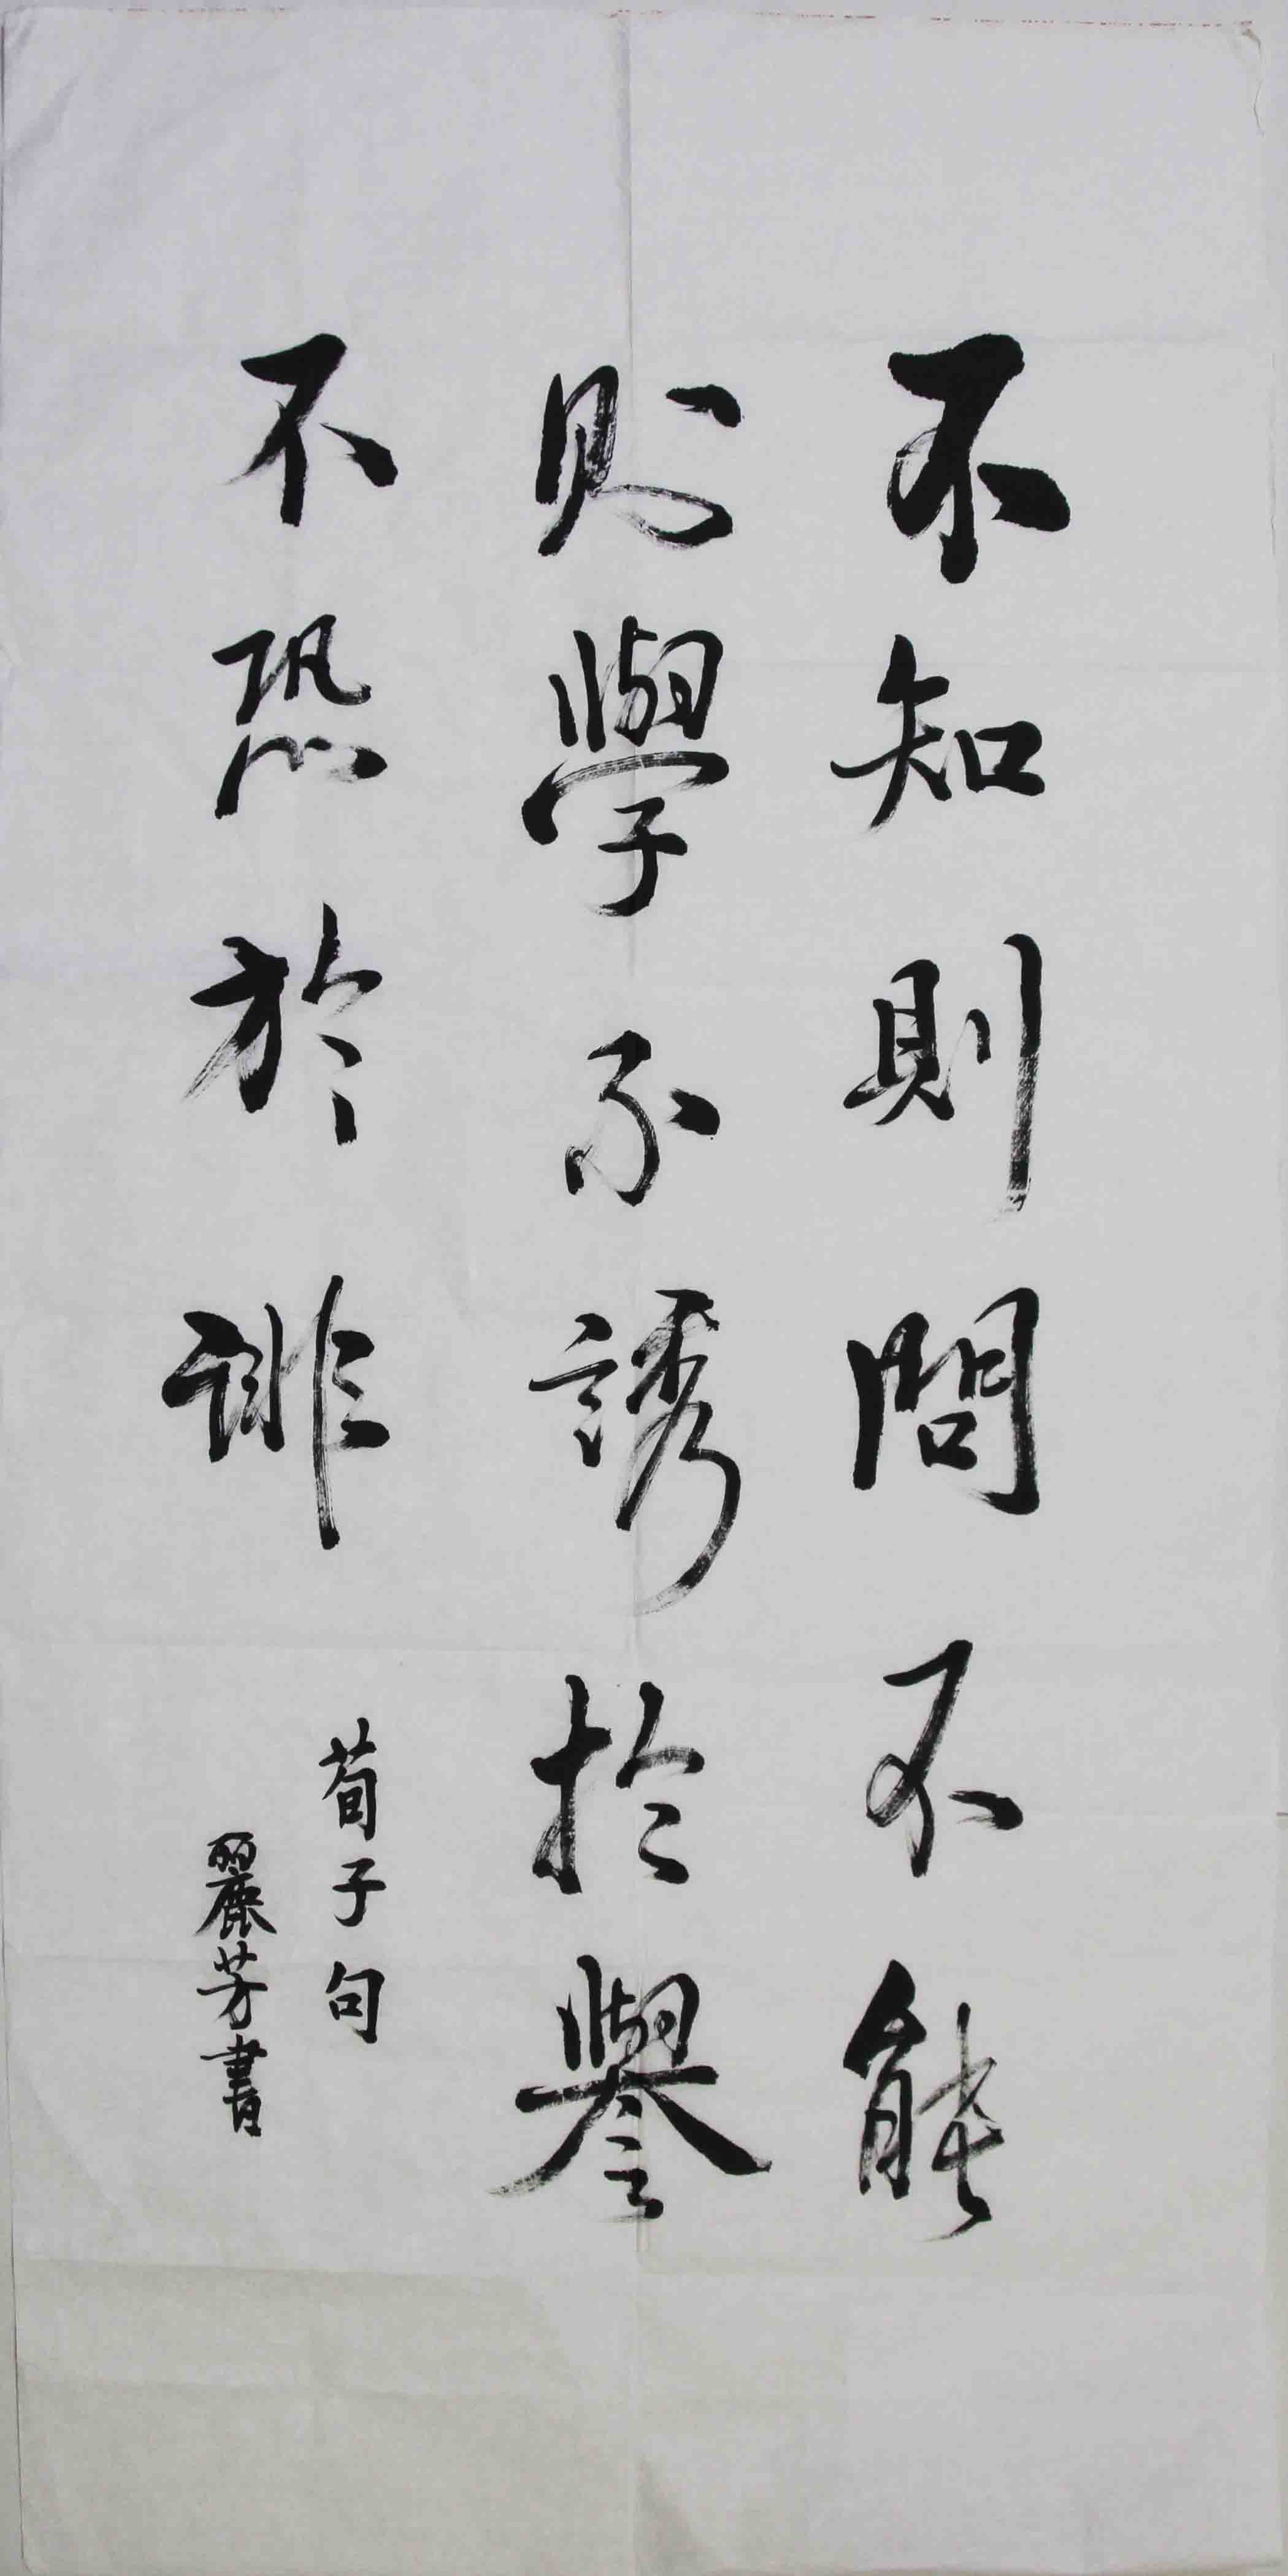 不知則問不能
則學不誘於譽
不恐於誹
荀子句
麗芳書